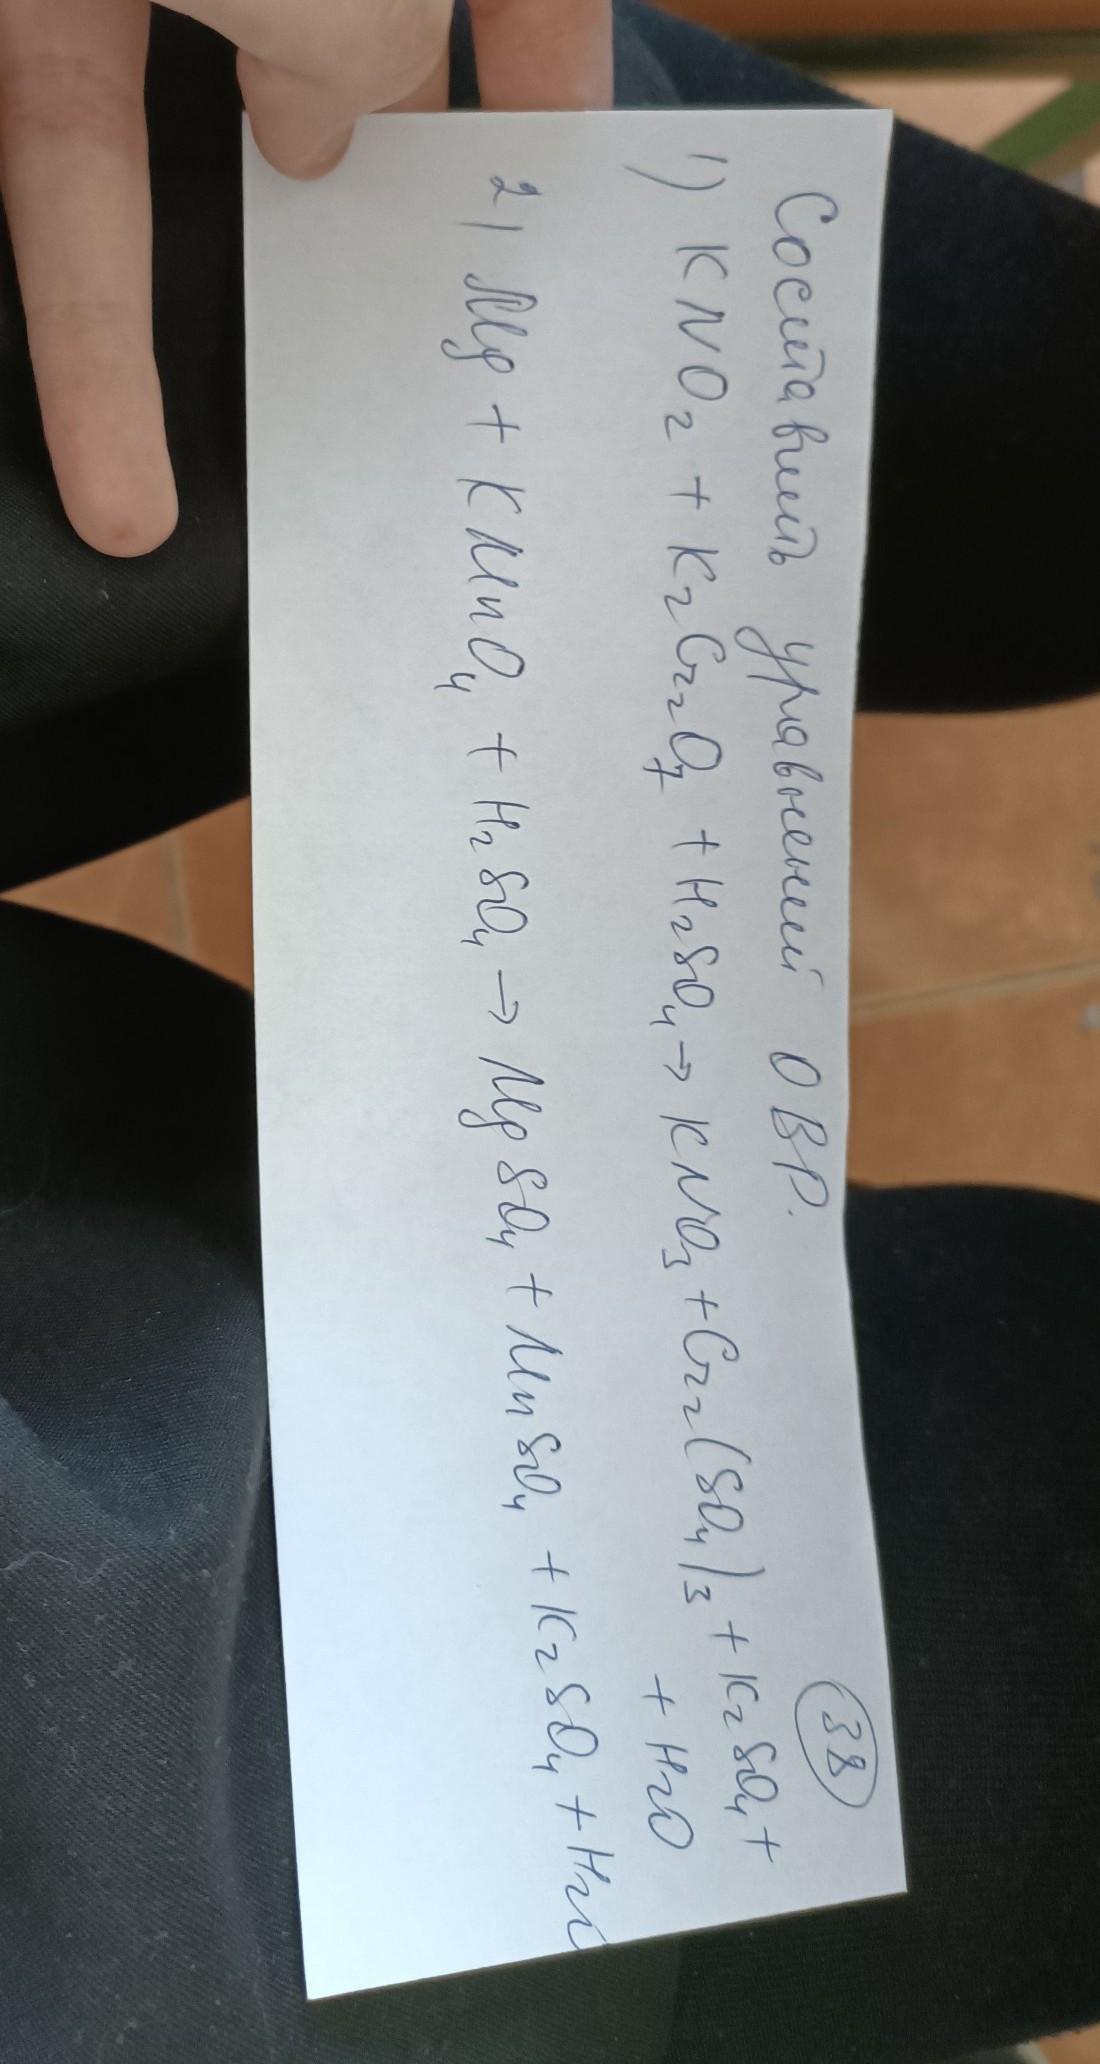 Составить уравнений ОВР. 38
1) KNO2 + K2Cr2O7 + H2SO4 → KNO3 + Cr2(SO4)3 + K2SO4 +
+ H2O
2) Mg + KMnO4 + H2SO4 → MgSO4 + MnSO4 + K2SO4 + H2O